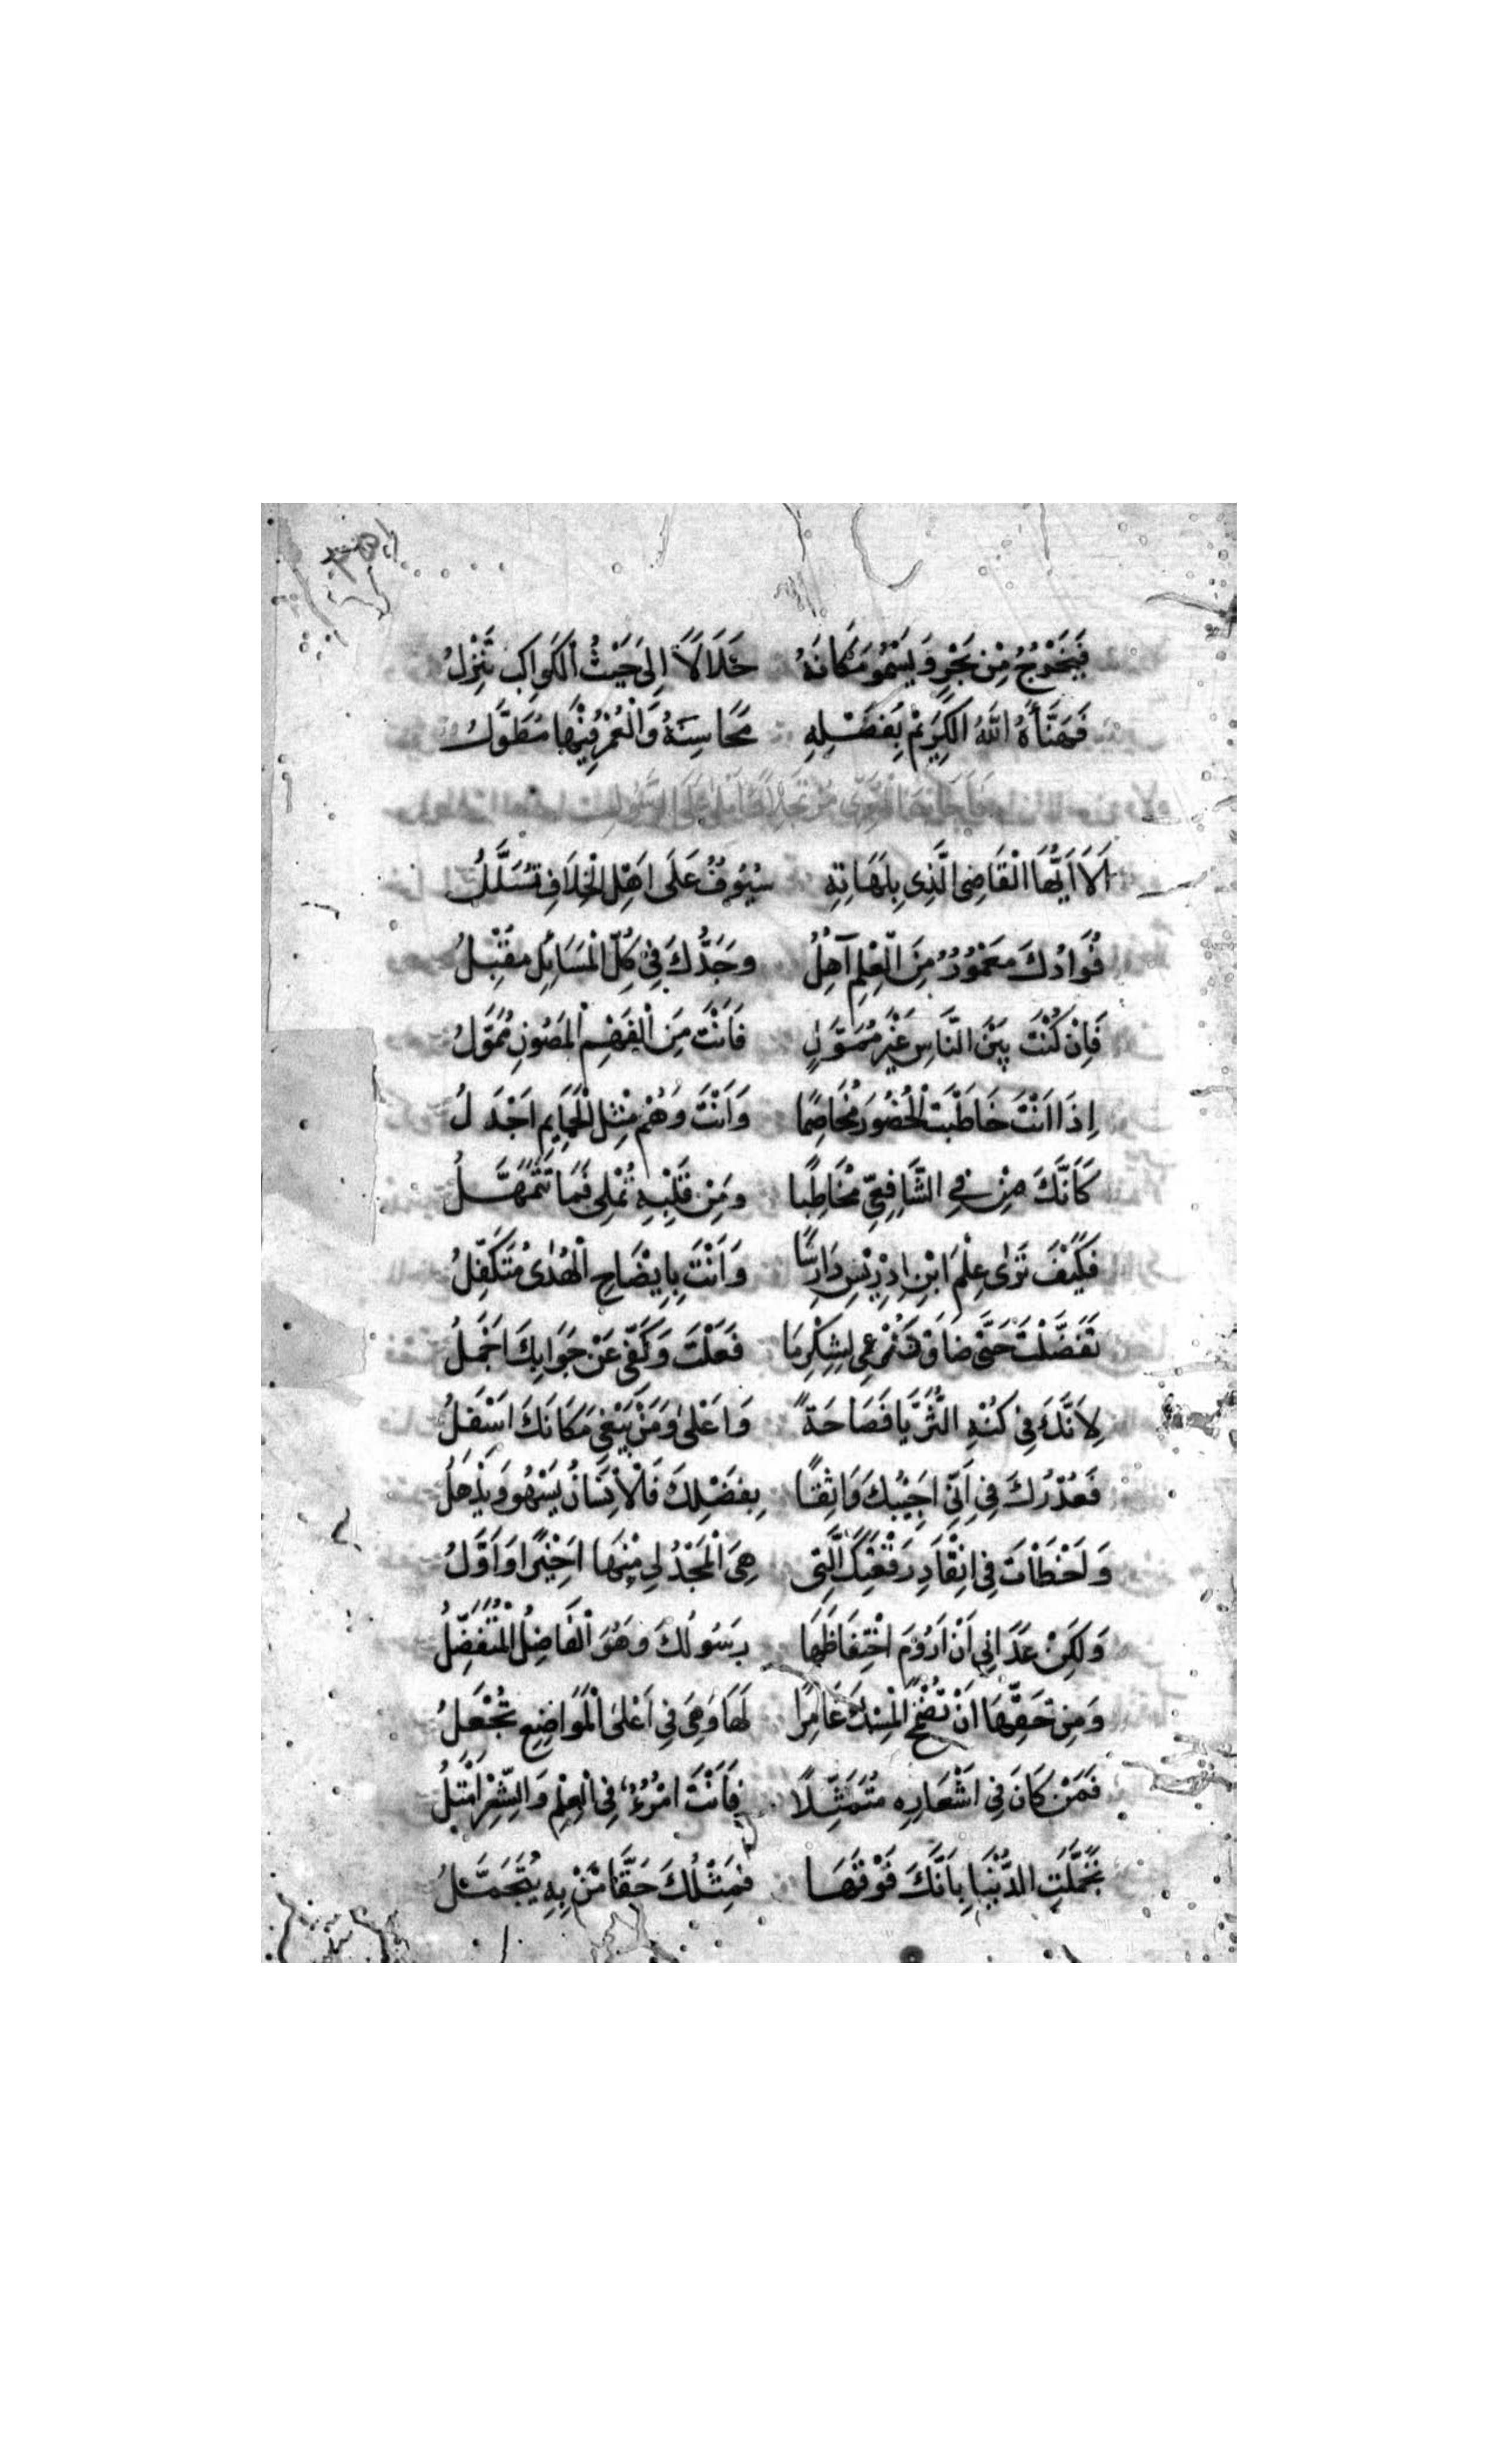 فَيَخْرُجُ مِنْ بَحْرٍ وَيَسْمُو مَكَانَهُ جَلَالاً اِلىَ حَيْثُ الْكَوَاكِبِ تَنْزِلُ
فَهَنَّأَهُ اللّٰهُ الْكَرِيَمْ بِفَضْلِهِ مَحَاسِنَهُ وَالْعُمْرُ فِيْهَا مُطَوَّلُ
فَأَجَابَهُ الْمَعَرِّي مُرْتَجِلاً وَأَمْلىٰ عَلَى الرَّسُولِ
اَلاَ اَيُّهَا الْقَاضِى الَّذِي بِلَهَاتِهِ سُيُوفٌ عَلَى اَهْلِ الْخِلَافِ تُسَلَّلُ
فُوَادُكَ مَعْمُوْرٌ مِنَ الْعِلْمِ آهِلُ وَجَدُّكَ فِيْ كُلِّ الْمَسَايِلِ مُقْبِلُ
فَاِنْ كُنْتَ بَيْنَ النَّاسِ غَيْرَ مُمَوَّلٍ فَاَنْتَ مِنَ الْفَهْمِ الْمَصُونِ مُمَوَّلُ
اِذَا اَنْتَ خَاطَبْتَ الْخُصُوْمَ مُخَاصِمًا وَاَنْتَ وَهُمْ مِثْلُ الْحَمَايِمِ اَجْدَلُ
كَاَنَّكَ مِنْ فِي الشَّافِعِيِّ مُخَاطِبًا وَمِنْ قَلْبِهِ تُمْلِى فَمَا تَتَمَهَّلُ
فَكَيْفَ تَرٰى عِلْمَ ابْنِ اِدْرِيْسِ دَارِسًا وَاَنْتَ بِاِيْضَاحِ الْهُدٰى مُتَكَفِّلُ
تَفَضَّلْتَ حَتَّى ضَاقَ ذَرْعِي لِشُكْرِمَا فَعَلْتَ وَكَفّي عَنْ جَوَابِكَ اَجْمَلُ
لِاَنَّكَ فِي كُنْهِ الثُّرَيَّا فَصَاحَةً وَاَعْلىٰ وَمَنْ يَبْغِي مَكَانَكَ اَسْفَلُ
فَعُذْرُكَ فِي اَنِّي اَجَبْتُكَ وَاثِقًا بِفَضْلِكَ فَالْاِنْسَانُ يَسْهُو وَيَذْهَلُ
وَلَخْطَأْتُ فِي انْفَاذِ رَقْعَتِكَ الَّتِي هِىَ الْمَجْدُ لِي مِنْهَا اَخِيْرًا وَاَوَّلُ
وَلَكِنْ عَدَانِي اَنْ اَرُوْمَ احْتِفَاظَهَا رَسُولُكَ وَهُوَ الْفَاضِلُ الْمُتَفَضِّلُ
وَمِنْ حَقِّهَا اَنْ تُضْحِ الْمِسْكَ غَامِرًا لَهَا وَهِيَ فِي اَعْلَى الْمَوَاضِعِ تُجْعَلُ
فَمَنْ كَانَ فِي اَشْعَارِهِ مُتَمَثِّلاً فَاَنْتَ امْرُءٌ فِي الْعِلْمِ وَالشِّعْرِ اَمْثَلُ
تَجَمَّلَتِ الدُّنْيَا بِاَنَّكَ فَوْقَهَا فَمِثْلُكَ حَقًّا مَنْ بِهِ يُتَجَمَّلُ